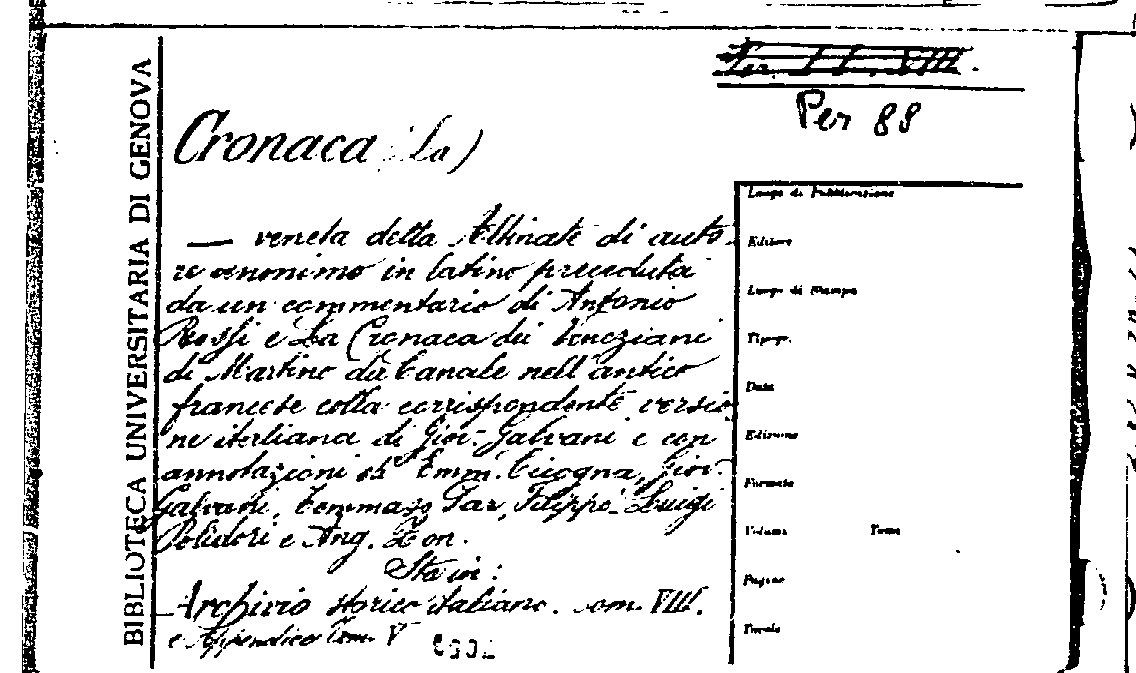 BIBLIOTECA UNIVERSITARIA DI GENOVA
Per.
Per 88
Cronaca (La)
— veneta detta Altinate di auto-
re anonimo in latino preceduta
da un commentario di Antonio
Rossi e La Cronaca dei Veneziani
di Martino da Canale nell'antico
francese colla corrispondente versio-
ne italiana di Giov. Galvani e con
annotazioni di Emm. Cicogna, Giov.
Galvani, Tommaso Gar, Filippo-Luigi
Polidori e Ang. Zon.
Sta in:
Archivio storico italiano. tom. VIII.
e Appendice Tom. V
Luogo di Pubblicazione
Editore
Luogo di Stampa
Tipogr.
Data
Edizione
Formato
Volume Tomo
Pagine
Tavole